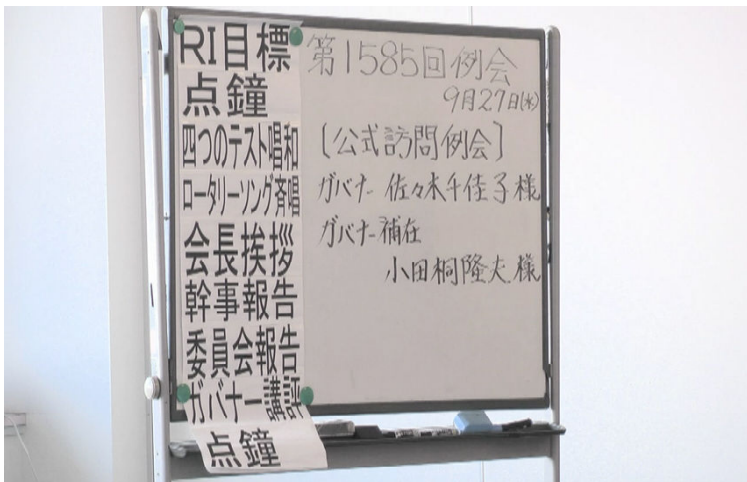 RI目標
点鐘
四つのテスト唱和
ロータリーソング斉唱
会長挨拶
幹事報告
委員会報告
ガバナー講評
点鐘
第1585回例会
9月27日(水)
〔公式訪問例会〕
ガバナー 佐々木千佳子様
ガバナー補在
小田桐隆夫様